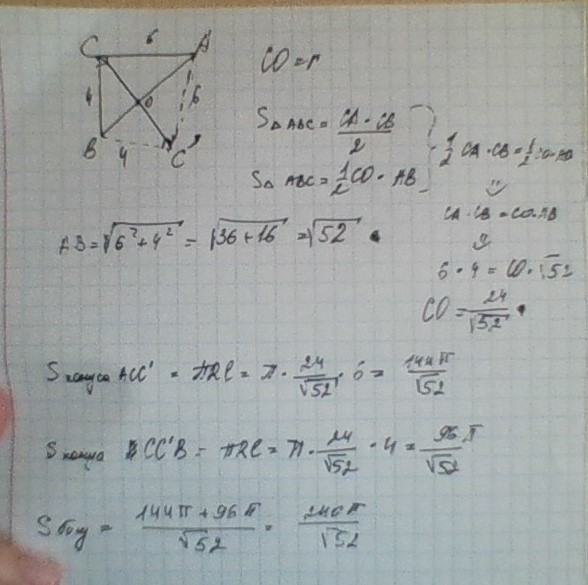 C 6 A
4 O 6
B 4 C'
CO = r
S△ABC = CA · CB / 2
S△ABC = 1/2 CO · AB
1/2 CA · CB = 1/2 CO · AB
⇓
CA · CB = CO · AB
⇓
6 · 4 = CO · √52
CO = 24/√52
AB = √6² + 4² = √36 + 16 = √52
S конуса ACC' = πRL = π · 24/√52 · 6 = 144π/√52
S конуса CC'B = πRL = π · 24/√52 · 4 = 96π/√52
S бок = 144π + 96π / √52 = 240π/√52